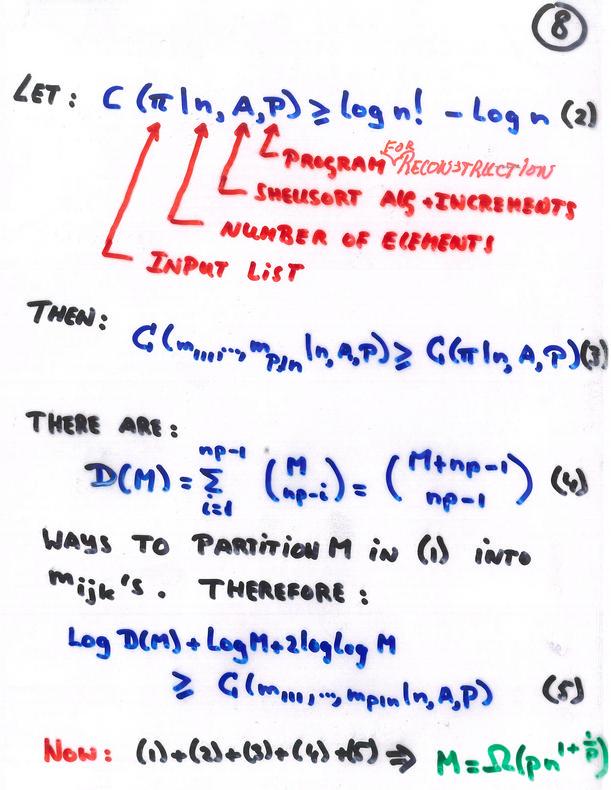 8
LET: C(π|n, A, P) ≥ log n! - Log n (2)
PROGRAM FOR RECONSTRUCTION
SHELLSORT ALG + INCREMENTS
NUMBER OF ELEMENTS
INPUT LIST
THEN:
C(m₁₁₁,..., m_{p1n}|n, A, P) ≥ C(π|n, A, P) (3)
THERE ARE:
D(M) = Σ_{i=1}^{np-1} (M np-i) = (M+np-1 np-1) (4)
WAYS TO PARTITION M IN (1) INTO
m_{ijk}'s. THEREFORE:
Log D(M) + Log M + 2loglog M
≥ C(m₁₁₁,..., m_{p1n}|n, A, P) (5)
NOW: (1)+(2)+(3)+(4)+(5) ⇒ M = Ω(pn^{1+1/p})